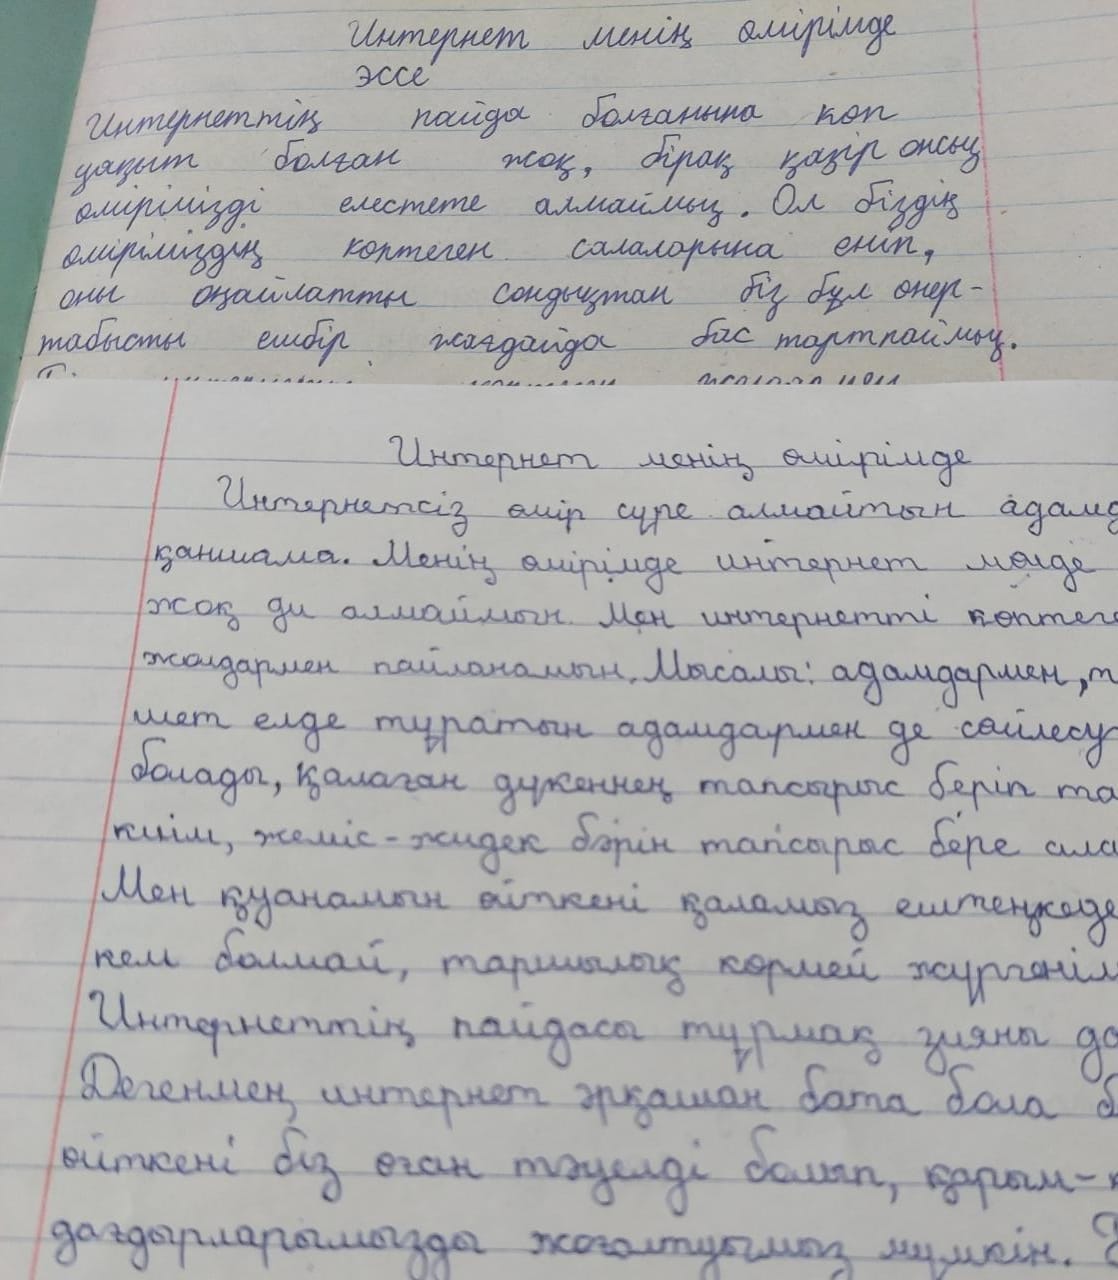 Интернет менің өмірімде
эссе
Интернеттің пайда болғанына көп
уақыт болған жоқ, бірақ қазір онсыз
өмірімізді елестете алмаймыз. Ол біздің
өміріміздің көптеген салаларына еніп,
оны оңайлатты сондықтан біз бұл өнер-
табысты ешбір жағдайда бас тартпаймыз.
Интернет менің өмірімде
Интернетсіз өмір сүре алмайтын адамд
қаншама. Менің өмірімде интернет мүлде
жоқ ди алмаймын. Мен интернетті көптеге
жолдармен пайланамын. Мысалы: адамдармен, т
шет елде тұратын адамдармен де сөйлесу
болады, қалаған дүкеннең тапсырыс беріп та
киім, жеміс-жидек бәрін тапсырыс бере ала
Мен қуанамын өйткені қаламыз ештеңкеде
кем болмай, таршылық көрмей жүргенім
Интернеттің пайдасы тұрмақ зияны да
Дегенмең интернет әрқашан бата бола б
өйткені біз оған тәуелді болып, қарым-қ
дағдырларымызды жоғалтуымыз мүмкін.